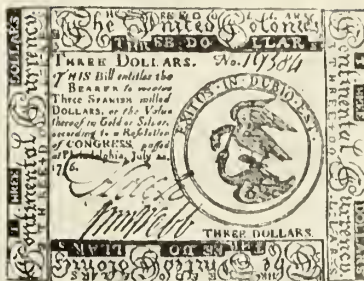 The United Colonies
THREE DOLLAR
THREE DOLLARS. No. 19384
THIS Bill entitles the
BEARER to receive
Three SPANISH milled
DOLLARS, or the Value
thereof in Gold or Silver,
according to a Resolution
of CONGRESS, passed
at Philadelphia, July 22,
1776.
EXITUS IN DUBIO EST.
THREE DOLLARS.
Continental Currency
DOLLARS
THREE
The United Colonies